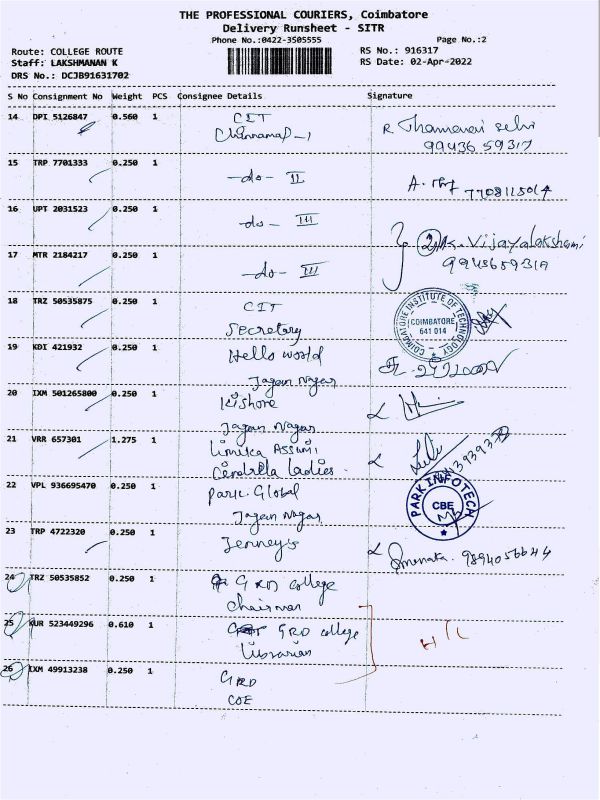 THE PROFESSIONAL COURIERS, Coimbatore
Delivery Runsheet - SITR
Phone No.:0422-3505555 Page No.:2
Route: COLLEGE ROUTE RS No.: 916317
Staff: LAKSHMANAN K RS Date: 02-Apr-2022
DRS No.: DCJB91631702
S No Consignment No Weight PCS Consignee Details Signature
14 DPI 5126847 0.560 1 CIT
99436 59317
15 TRP 7701333 0.250 1 -do- II A.
16 UPT 2031523 0.250 1 -do- III
2 K. Vijayalakshmi
17 MTR 2184217 0.250 1 -do- III
18 TRZ 50535875 0.250 1 CIT
Secretary
COIMBATORE INSTITUTE OF TECHNOLOGY
COIMBATORE
641 014
19 KDI 421932 0.250 1 Hello world
Jagan Nagar
20 IXM 501265800 0.250 1 Kishore
Jagan Nagar
21 VRR 657301 1.275 1
Cindrella Ladies.
22 VPL 936695470 0.250 1 Park Global
Jagan Nagar
PARK INFOTECH
CBE
23 TRP 4722320 0.250 1 Jenney's
24 TRZ 50535852 0.250 1 GRD college
chairman
25 KUR 523449296 0.610 1 GRD college
Librarian
26 IXM 49913238 0.250 1 GRD
COE